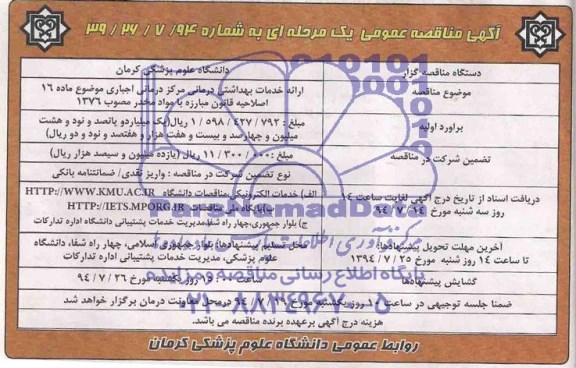 آگهی مناقصه عمومی یک مرحله ای به شماره ۹۴/ ۷ / ۲۶ / ۳۹
دستگاه مناقصه گزار
دانشگاه علوم پزشکی کرمان
موضوع مناقصه
ارائه خدمات بهداشتی درمانی مرکز درمانی اجباری موضوع ماده ۱۶
اصلاحیه قانون مبارزه با مواد مخدر مصوب ۱۳۷۶
براورد اولیه
مبلغ : ۷۹۲ / ۴۲۷ / ۵۹۸ / ۱ ریال(یک میلیاردو پانصد و نود و هشت
میلیون و چهارصد و بیست و هفت هزار و هفتصد و نود و دو ریال)
تضمین شرکت در مناقصه
مبلغ : ۰۰۰ / ۳۰۰ / ۱۱ ریال (یازده میلیون و سیصد هزار ریال)
نوع تضمین شرکت در مناقصه : واریز نقدی/ ضمانتنامه بانکی
دریافت اسناد از تاریخ درج آگهی لغایت ساعت ۱۴
روز سه شنبه مورخ ۱۴ / ۷ / ۹۴
الف) خدمات الکترونیکی مناقصات دانشگاه HTTP://WWW.KMU.AC.IR
ب)پایگاه ملی مناقصات HTTP://IETS.MPORG.IR
ج) بلوار جمهوری،چهار راه شفا،مدیریت خدمات پشتیبانی دانشگاه اداره تدارکات
آخرین مهلت تحویل پیشنهادها:
تا ساعت ۱۴ روز شنبه مورخ ۲۵ / ۷ / ۱۳۹۴
محل تسلیم پیشنهادها: بلوار جمهوری اسلامی، چهار راه شفا، دانشگاه
علوم پزشکی، مدیریت خدمات پشتیبانی اداره تدارکات
گشایش پیشنهادها
ساعت ۱۰ روز یکشنبه مورخ ۲۶ / ۷ / ۹۴
ضمنا جلسه توجیهی در ساعت ۱۰ روز یکشنبه مورخ / ۷ / ۹۴ درمحل معاونت درمان برگزار خواهد شد
هزینه درج آگهی برعهده برنده مناقصه می باشد.
روابط عمومی دانشگاه علوم پزشکی کرمان
پایگاه اطلاع رسانی مناقصه و مزایده
۰۲۱-۸۸۳۴۹۶۷۰-۵